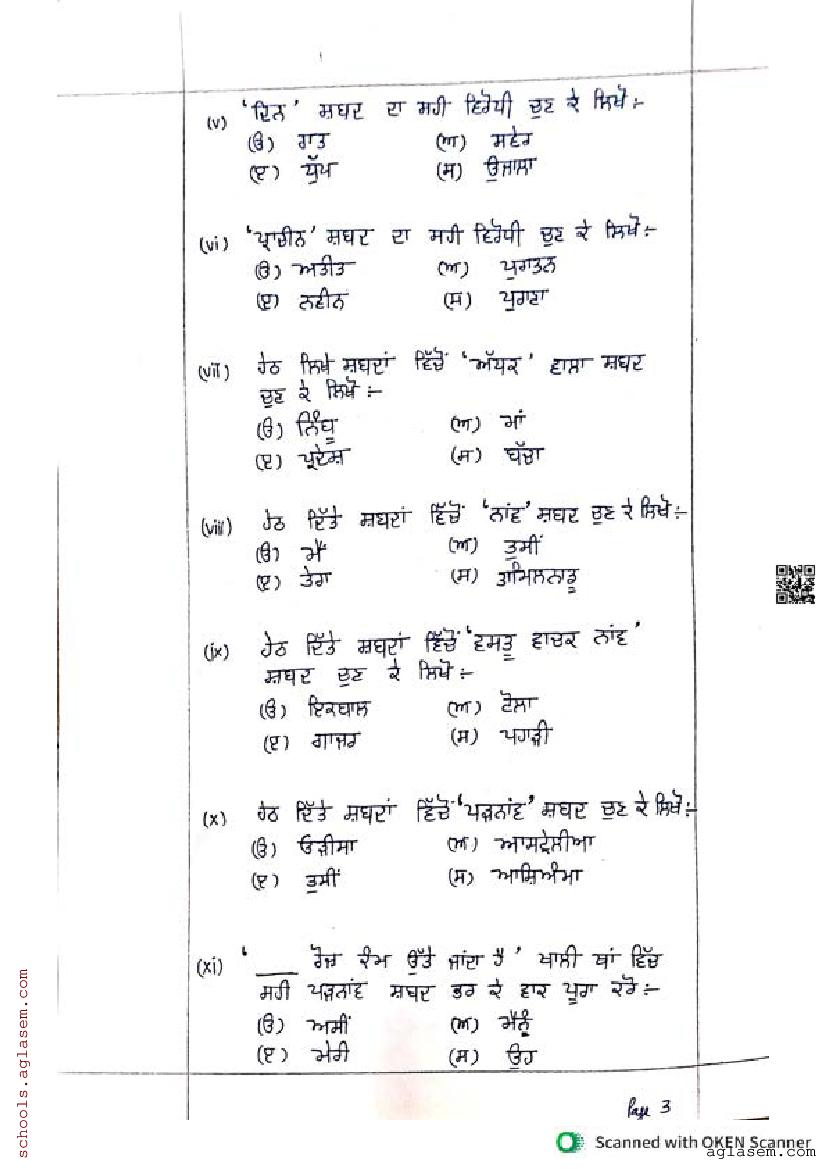 (v) 'ਦਿਨ' ਸ਼ਬਦ ਦਾ ਸਹੀ ਵਿਰੋਧੀ ਚੁਣ ਕੇ ਲਿਖੋ :-
(ੳ) ਰਾਤ (ਅ) ਸਵੇਰ
(ੲ) ਧੁੱਖ (ਸ) ਉਜਾਲਾ
(vi) 'ਪ੍ਰਾਚੀਨ' ਸ਼ਬਦ ਦਾ ਸਹੀ ਵਿਰੋਧੀ ਚੁਣ ਕੇ ਲਿਖੋ :-
(ੳ) ਅਤੀਤ (ਅ) ਪੁਰਾਤਨ
(ੲ) ਨਵੀਨ (ਸ) ਪੁਰਾਣਾ
(vii) ਹੇਠ ਲਿਖੇ ਸ਼ਬਦਾਂ ਵਿੱਚੋਂ 'ਅੱਧਕ' ਵਾਲਾ ਸ਼ਬਦ
ਚੁਣ ਕੇ ਲਿਖੋ :-
(ੳ) ਨਿੰਬੂ (ਅ) ਮਾਂ
(ੲ) ਪ੍ਰਦੇਸ਼ (ਸ) ਬੱਚਾ
(viii) ਹੇਠ ਦਿੱਤੇ ਸ਼ਬਦਾਂ ਵਿੱਚੋਂ 'ਨਾਂਵ' ਸ਼ਬਦ ਚੁਣ ਕੇ ਲਿਖੋ :-
(ੳ) ਮੈਂ (ਅ) ਤੁਸੀਂ
(ੲ) ਤੇਰਾ (ਸ) ਤਾਮਿਲਨਾਡੂ
(ix) ਹੇਠ ਦਿੱਤੇ ਸ਼ਬਦਾਂ ਵਿੱਚੋਂ 'ਵਸਤੂ ਵਾਚਕ ਨਾਂਵ'
ਸ਼ਬਦ ਚੁਣ ਕੇ ਲਿਖੋ :-
(ੳ) ਇਕਬਾਲ (ਅ) ਟੋਲਾ
(ੲ) ਗਾਜਰ (ਸ) ਪਹਾੜੀ
(x) ਹੇਠ ਦਿੱਤੇ ਸ਼ਬਦਾਂ ਵਿੱਚੋਂ 'ਪੜਨਾਂਵ' ਸ਼ਬਦ ਚੁਣ ਕੇ ਲਿਖੋ :-
(ੳ) ਓੜੀਸਾ (ਅ) ਆਸਟ੍ਰੇਲੀਆ
(ੲ) ਤੁਸੀਂ (ਸ)
(xi) '___ ਰੋਜ਼ ਕੰਮ ਉੱਤੇ ਜਾਂਦਾ ਹੈ' ਖਾਲੀ ਥਾਂ ਵਿੱਚ
ਸਹੀ ਪੜਨਾਂਵ ਸ਼ਬਦ ਭਰ ਕੇ ਵਾਕ ਪੂਰਾ ਕਰੋ :-
(ੳ) ਅਸੀਂ (ਅ) ਮੈਨੂੰ
(ੲ) ਮੇਰੀ (ਸ) ਉਹ
Page 3
Scanned with OKEN Scanner
aglasem.com
schools.aglasem.com